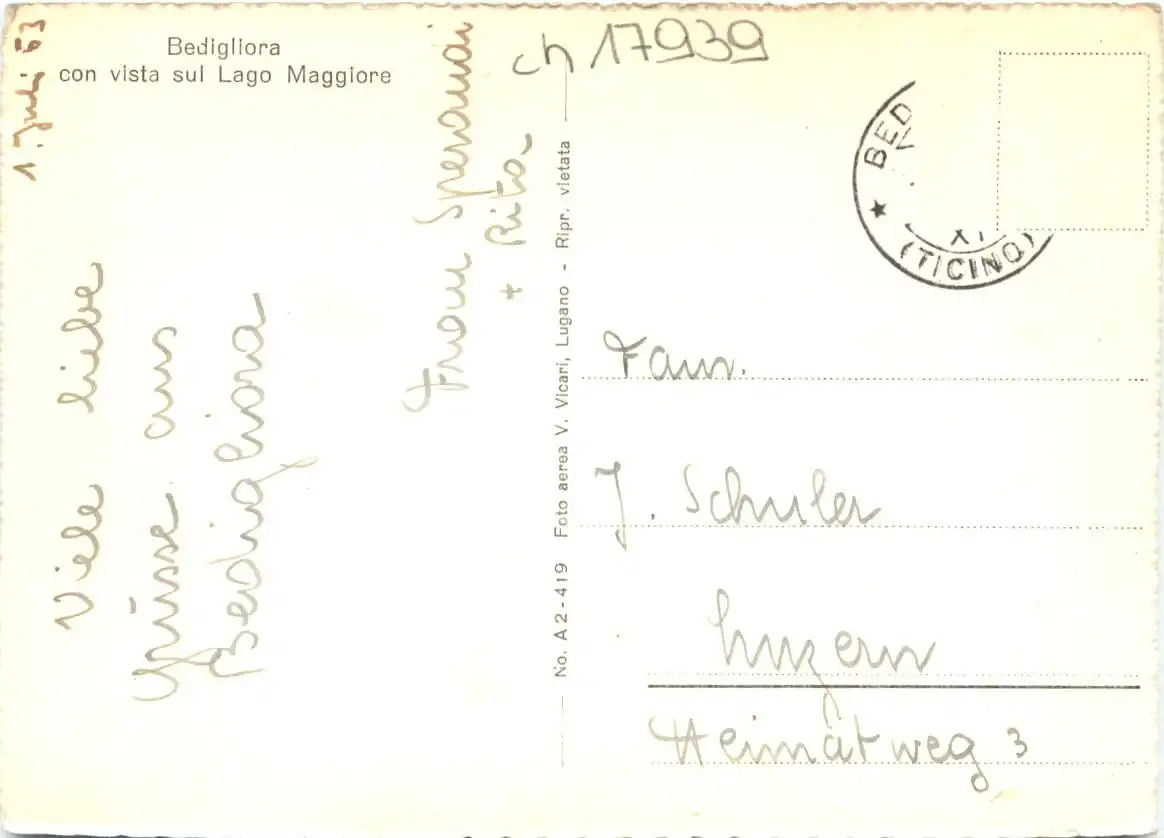 Bedigliora
con vista sul Lago Maggiore
ch 17939
1. Juli 63
Viele liebe
Grüsse aus
Bedigliora
Frau
+ Rita
No. A 2 - 419 Foto aerea V. Vicari, Lugano - Ripr. vietata
BED
XI
(TICINO)
Fam.
J. Schuler
Luzern
Heimatweg 3